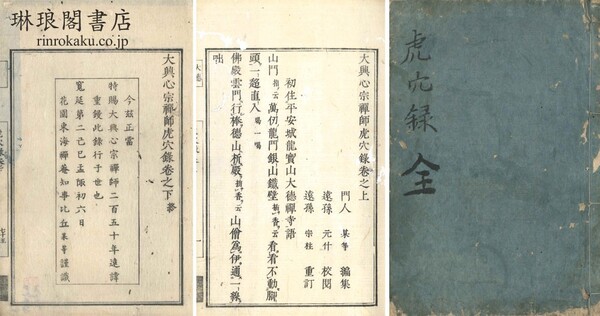 琳琅閣書店
rinrokaku.co.jp
大興心宗禪師虎穴錄卷之下終
今茲正當
特賜大興心宗禪師二百五十年遠諱
重鋟此錄行于世也
寬延第二己巳孟陬初六日
花園東海禪菴知事比丘某等謹識
大興心宗禪師虎穴錄卷之上
門人 某等 編集
遠孫 元什 校閱
遠孫 宗柱 重訂
初住平安城龍寶山大德禪寺語
山門 萬仞龍門銀山鐵壁 看看不動腳
頭一超直入 喝一喝
佛殿雲門行棒德山拆殿 山僧爲伊通一線
咄
虎穴録 全